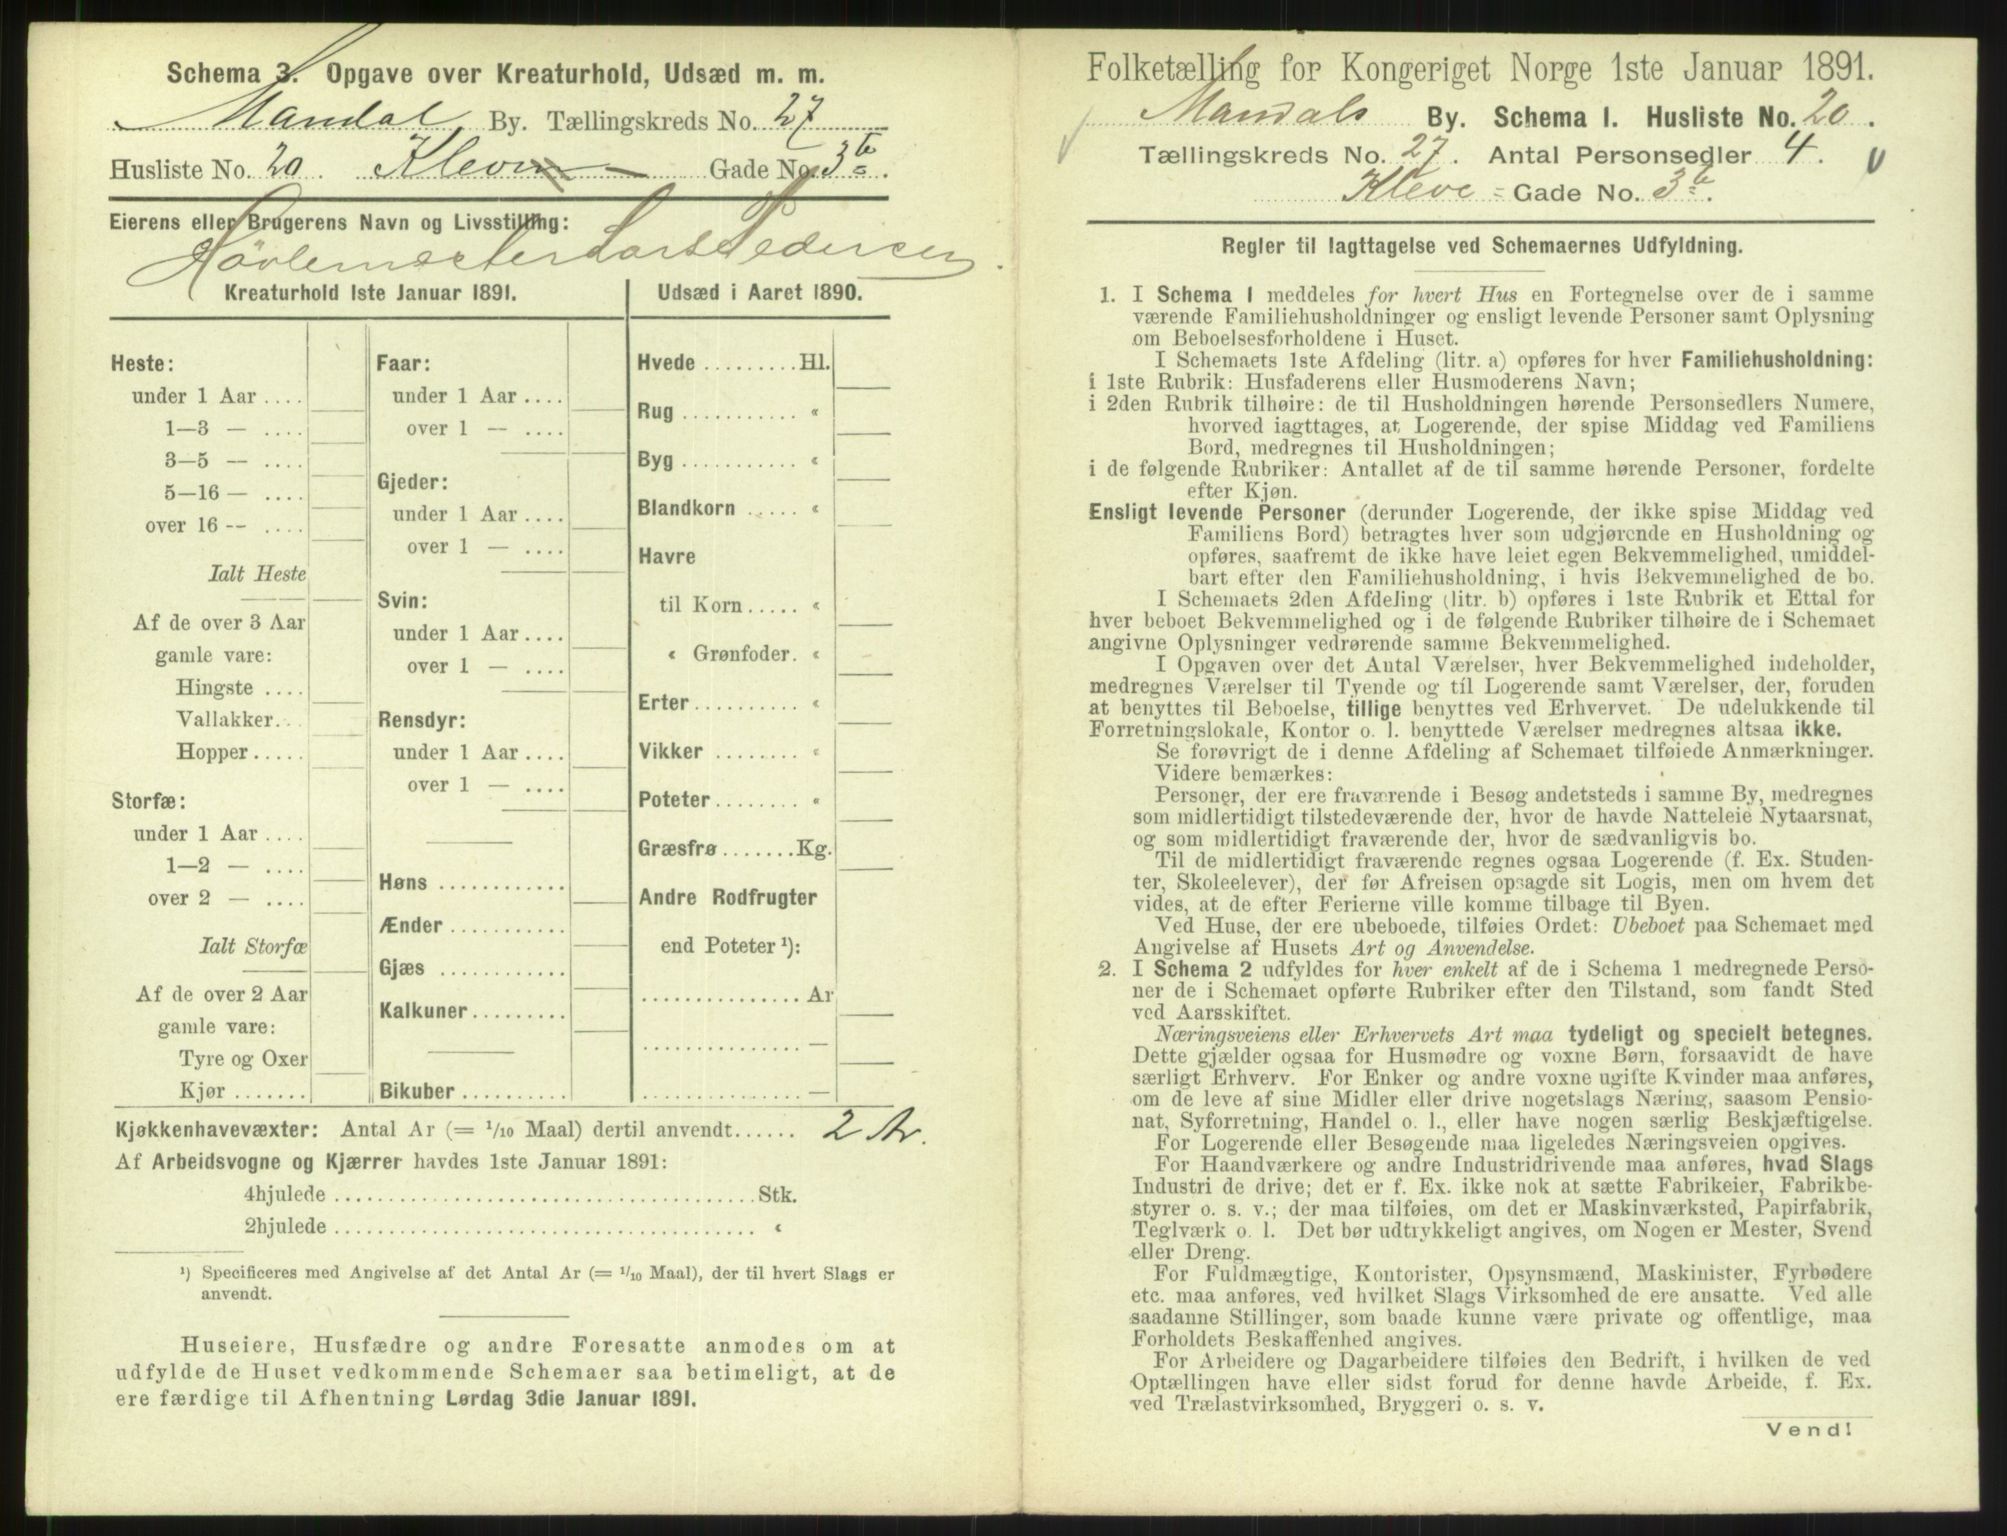 Schema 3. Opgave over Kreaturhold, Udsæd m. m.
Mandal By. Tællingskreds No. 27
Husliste No. 20 Kleven Gade No. 3b.
Eierens eller Brugerens Navn og Livsstilling:
Høvlemester Lars Pedersen.
Kreaturhold 1ste Januar 1891.
Heste:
under 1 Aar ....
1—3 — ....
3—5 — ....
5—16 — ....
over 16 -- ....
Ialt Heste
Af de over 3 Aar
gamle vare:
Hingste ....
Vallakker...
Hopper.....
Storfæ:
under 1 Aar ....
1—2 — ....
over 2 — ....
Ialt Storfæ
Af de over 2 Aar
gamle vare:
Tyre og Oxer
Kjør .......
Faar:
under 1 Aar ....
over 1 — ....
Gjeder:
under 1 Aar ....
over 1 — ....
Svin:
under 1 Aar ....
over 1 — ....
Rensdyr:
under 1 Aar ....
over 1 — ....
Høns ............
Ænder ...........
Gjæs ............
Kalkuner.........
Bikuber ..........
Udsæd i Aaret 1890.
Hvede .........Hl.
Rug ........... «
Byg ........... «
Blandkorn ..... «
Havre
til Korn..... «
« Grønfoder. «
Erter.......... «
Vikker ........ «
Poteter........ «
Græsfrø.......Kg.
Andre Rodfrugter
end Poteter ¹):
............... Ar
............... —
............... —
Kjøkkenhavevæxter: Antal Ar (= 1/10 Maal) dertil anvendt...... 2 Ar.
Af Arbeidsvogne og Kjærrer havdes 1ste Januar 1891:
4hjulede ........................................ Stk.
2hjulede ........................................ «
¹) Specificeres med Angivelse af det Antal Ar (= 1/10 Maal), der til hvert Slags er
anvendt.
Huseiere, Husfædre og andre Foresatte anmodes om at
udfylde de Huset vedkommende Schemaer saa betimeligt, at de
ere færdige til Afhentning Lørdag 3die Januar 1891.
Folketælling for Kongeriget Norge 1ste Januar 1891.
Mandals By. Schema I. Husliste No. 20.
Tællingskreds No. 27. Antal Personsedler 4.
Kleve = Gade No. 3b.
Regler til Iagttagelse ved Schemaernes Udfyldning.
1. I Schema 1 meddeles for hvert Hus en Fortegnelse over de i samme
værende Familiehusholdninger og ensligt levende Personer samt Oplysning
om Beboelsesforholdene i Huset.
I Schemaets 1ste Afdeling (litr. a) opføres for hver Familiehusholdning:
i 1ste Rubrik: Husfaderens eller Husmoderens Navn;
i 2den Rubrik tilhøire: de til Husholdningen hørende Personsedlers Numere,
hvorved iagttages, at Logerende, der spise Middag ved Familiens
Bord, medregnes til Husholdningen;
i de følgende Rubriker: Antallet af de til samme hørende Personer, fordelte
efter Kjøn.
Ensligt levende Personer (derunder Logerende, der ikke spise Middag ved
Familiens Bord) betragtes hver som udgjørende en Husholdning og
opføres, saafremt de ikke have leiet egen Bekvemmelighed, umiddel-
bart efter den Familiehusholdning, i hvis Bekvemmelighed de bo.
I Schemaets 2den Afdeling (litr. b) opføres i 1ste Rubrik et Ettal for
hver beboet Bekvemmelighed og i de følgende Rubriker tilhøire de i Schemaet
angivne Oplysninger vedrørende samme Bekvemmelighed.
I Opgaven over det Antal Værelser, hver Bekvemmelighed indeholder,
medregnes Værelser til Tyende og til Logerende samt Værelser, der, foruden
at benyttes til Beboelse, tillige benyttes ved Erhvervet. De udelukkende til
Forretningslokale, Kontor o. l. benyttede Værelser medregnes altsaa ikke.
Se forøvrigt de i denne Afdeling af Schemaet tilføiede Anmærkninger.
Videre bemærkes:
Personer, der ere fraværende i Besøg andetsteds i samme By, medregnes
som midlertidigt tilstedeværende der, hvor de havde Natteleie Nytaarsnat,
og som midlertidigt fraværende der, hvor de sædvanligvis bo.
Til de midlertidigt fraværende regnes ogsaa Logerende (f. Ex. Studen-
ter, Skoleelever), der før Afreisen opsagde sit Logis, men om hvem det
vides, at de efter Ferierne ville komme tilbage til Byen.
Ved Huse, der ere ubeboede, tilføies Ordet: Ubeboet paa Schemaet med
Angivelse af Husets Art og Anvendelse.
2. I Schema 2 udfyldes for hver enkelt af de i Schema 1 medregnede Perso-
ner de i Schemaet opførte Rubriker efter den Tilstand, som fandt Sted
ved Aarsskiftet.
Næringsveiens eller Erhvervets Art maa tydeligt og specielt betegnes.
Dette gjælder ogsaa for Husmødre og voxne Børn, forsaavidt de have
særligt Erhverv. For Enker og andre voxne ugifte Kvinder maa anføres,
om de leve af sine Midler eller drive nogetslags Næring, saasom Pensio-
nat, Syforretning, Handel o. l., eller have nogen særlig Beskjæftigelse.
For Logerende eller Besøgende maa ligeledes Næringsveien opgives.
For Haandværkere og andre Industridrivende maa anføres, hvad Slags
Industri de drive; det er f. Ex. ikke nok at sætte Fabrikeier, Fabrikbe-
styrer o. s. v.; der maa tilføies, om det er Maskinværksted, Papirfabrik,
Teglværk o. l. Det bør udtrykkeligt angives, om Nogen er Mester, Svend
eller Dreng.
For Fuldmægtige, Kontorister, Opsynsmænd, Maskinister, Fyrbødere
etc. maa anføres, ved hvilket Slags Virksomhed de ere ansatte. Ved alle
saadanne Stillinger, som baade kunne være private og offentlige, maa
Forholdets Beskaffenhed angives.
For Arbeidere og Dagarbeidere tilføies den Bedrift, i hvilken de ved
Optællingen have eller sidst forud for denne havde Arbeide, f. Ex.
ved Trælastvirksomhed, Bryggeri o. s. v.
Vend!